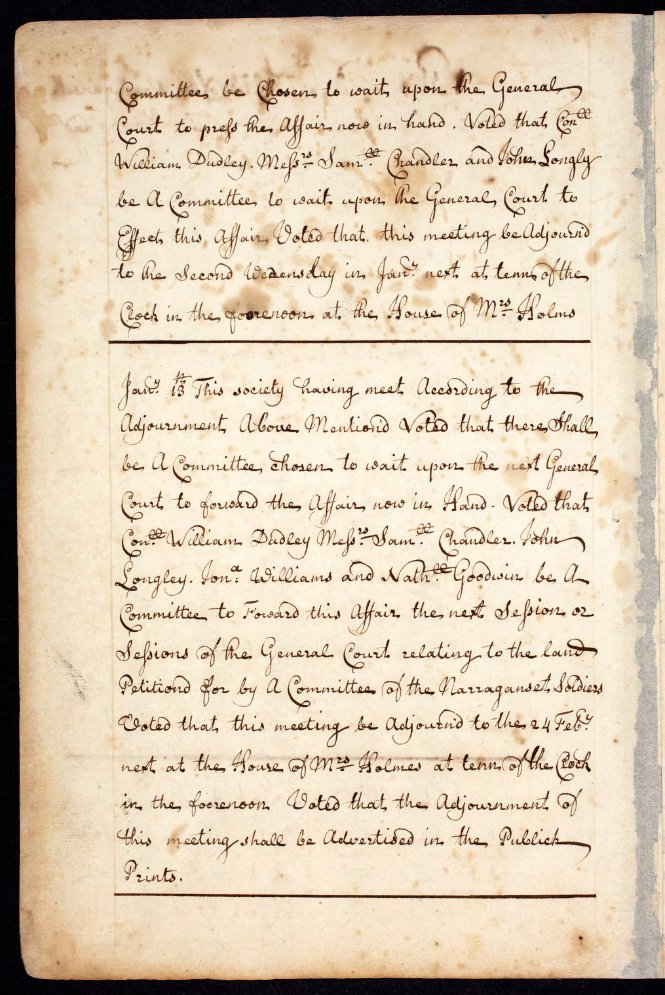 Committee be Chosen to wait upon the General
Court to press the Affair now in hand. Voted that Conll
William Dudley. Messrs Samll. Chandler and John Longly
be A Committee to wait upon the General Court to
Effect this Affair Voted that this meeting be Adjournd
to the Second Wedensday in Jany next at tenn of the
Clock in the foorenoon at the House of Mrs Holms
Jany. 13th This society having meet According to the
Adjournment Above Mentiond Voted that there Shall
be A Committee chosen to wait upon the next General
Court to forward the Affair now in Hand. Voted that
Conll William Dudley Messrs. Samll. Chandler. John
Longley. Jona. Williams and Nathll. Goodwin be A
Committee to Foward this Affair the next Session or
Sessions of the General Court relating to the land
Petitiond for by A Committee of the Narraganset Soldiers
Voted that this meeting be Adjournd to the 24 Feby.
next at the House of Mrs Holmes at tenn of the Clock
in the foorenoon Voted that the Adjournment of
this meeting shall be Advertised in the Publick
Prints.